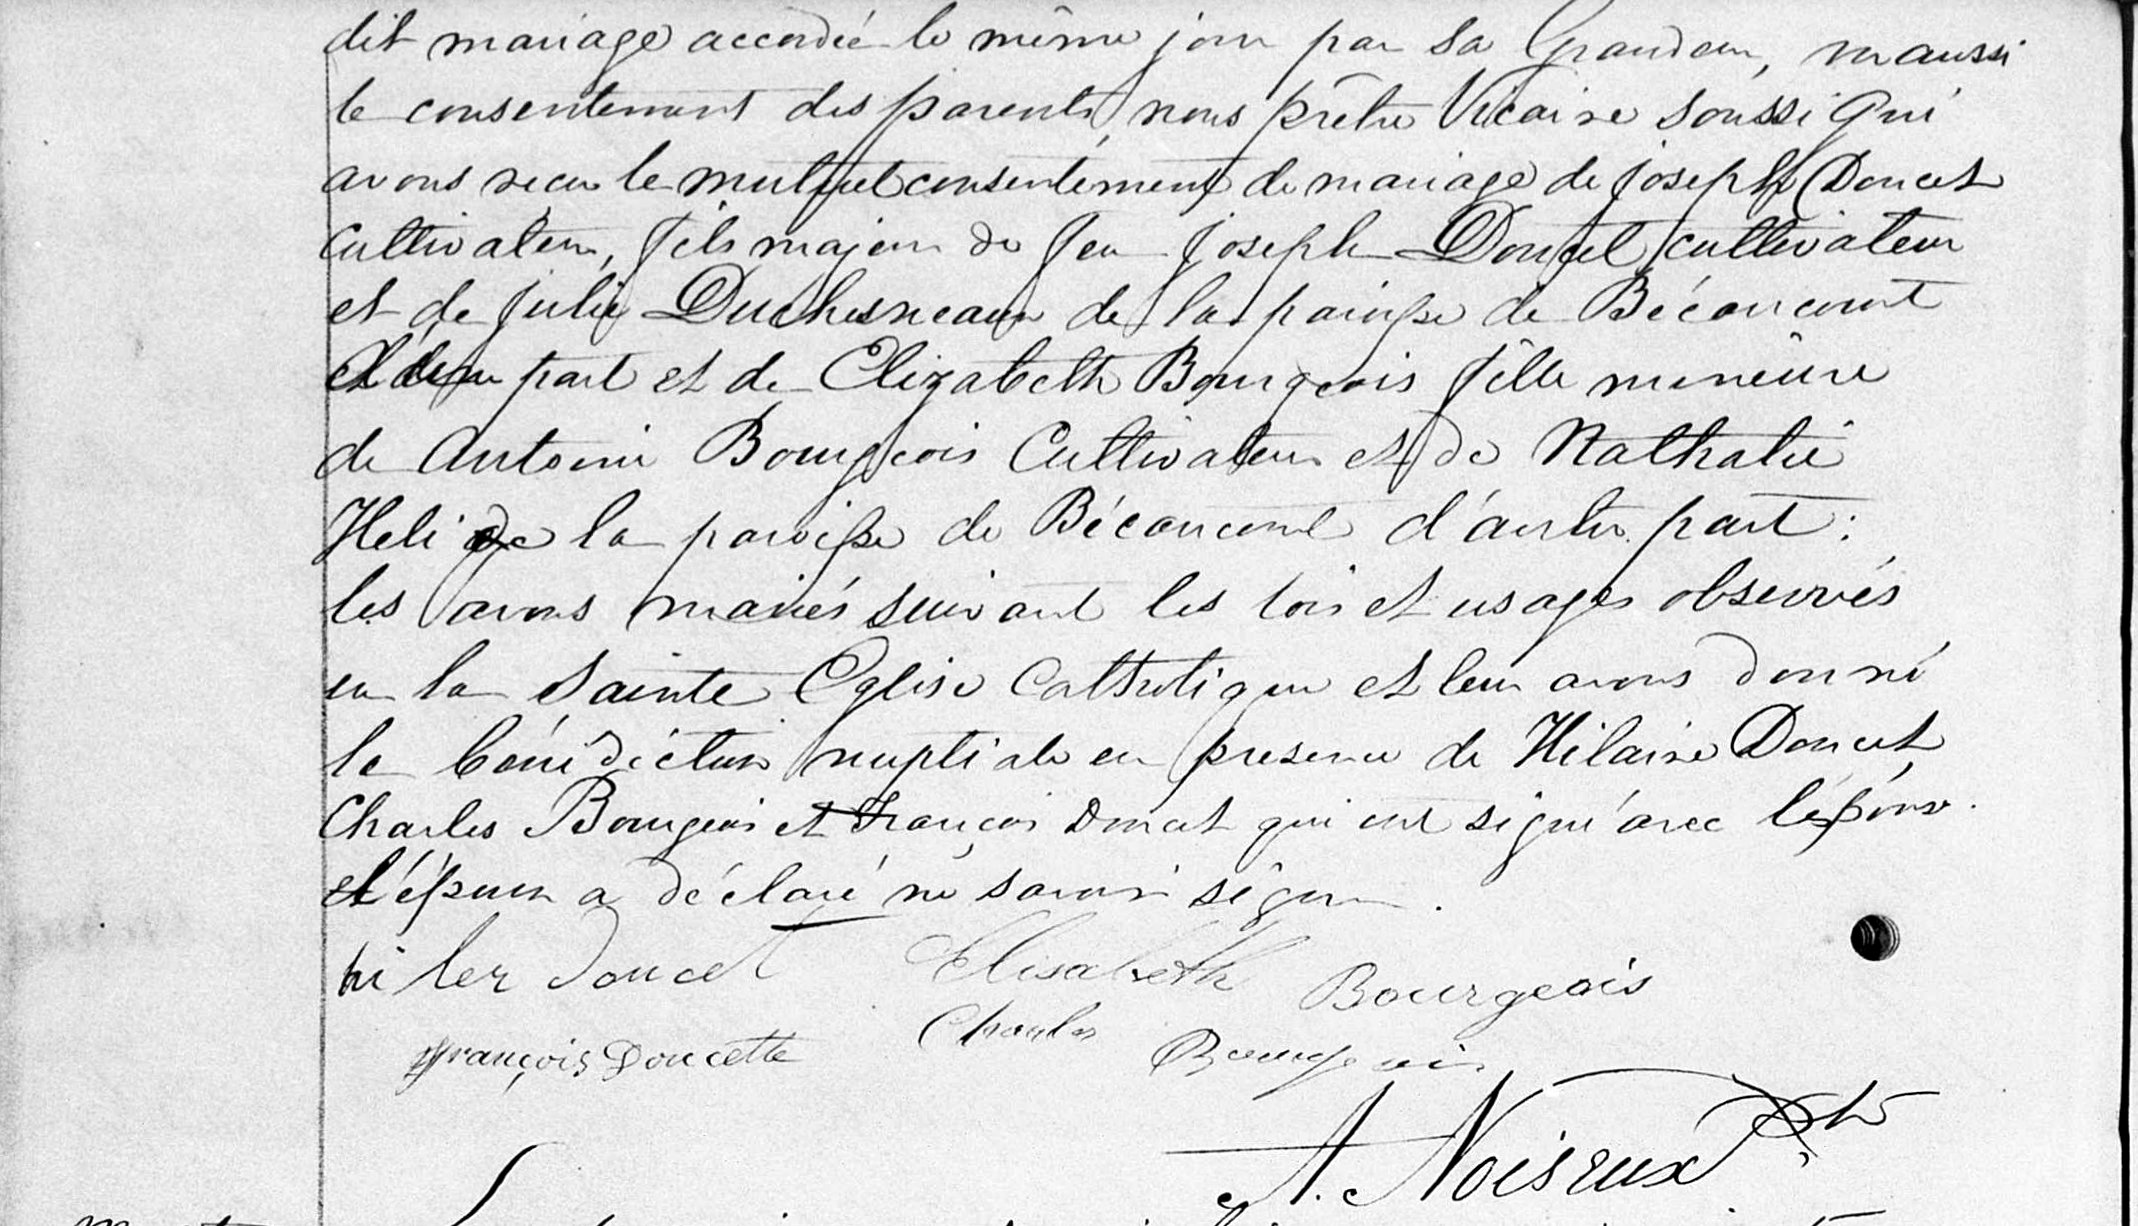 dit mariage accordée le même jour par Sa Grandeur, vu aussi
le consentement des parents, nous prêtre Vicaire soussigné
avons reçu le mutuel consentement de mariage de Joseph Doucet
Cultivateur, fils majeur de feu Joseph Doucet cultivateur
et de Julie Duchesneau de la paroisse de Bécancourt
d'une part et de Elizabeth Bourgeois fille mineure
de Antoine Bourgeois Cultivateur et de Nathalie
Heli de la paroisse de Bécancourt d'autre part :
les avons mariés suivant les lois et usages observés
en la Sainte Eglise Catholique et leur avons donné
la bénédiction nuptiale en présence de Hilaire Doucet,
Charles Bourgeois et François Doucet qui ont signé avec l'épouse.
L'époux a déclaré ne savoir signer.
hiler doucet Elisabeth Bourgeois
françois Doucette Charles Bourgeois
A. Noiseux Ptr